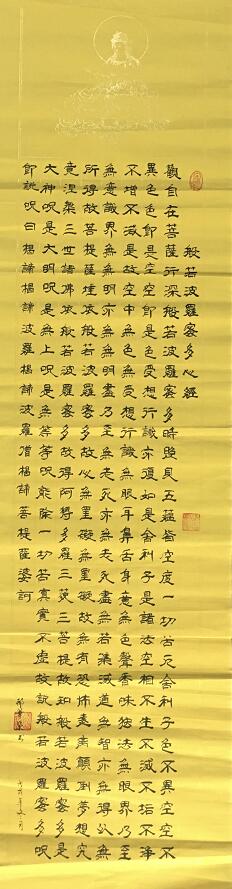 般若波羅蜜多心經
觀自在菩薩行深般若波羅蜜多時照見五蘊皆空度一切苦厄舍利子色不異空空不
異色色即是空空即是色受想行識亦復如是舍利子是諸法空相不生不滅不垢不淨
不增不減是故空中無色無受想行識無眼耳鼻舌身意無色聲香味觸法無眼界乃至
無意識界無無明亦無無明盡乃至無老死亦無老死盡無苦集滅道無智亦無得以無
所得故菩提薩埵依般若波羅蜜多故心無罣礙無罣礙故無有恐怖遠離顛倒夢想究
竟涅槃三世諸佛依般若波羅蜜多故得阿耨多羅三藐三菩提故知般若波羅蜜多是
大神呪是大明呪是無上呪是無等等呪能除一切苦真實不虛故說般若波羅蜜多呪
即說呪曰揭諦揭諦波羅揭諦波羅僧揭諦菩提薩婆訶